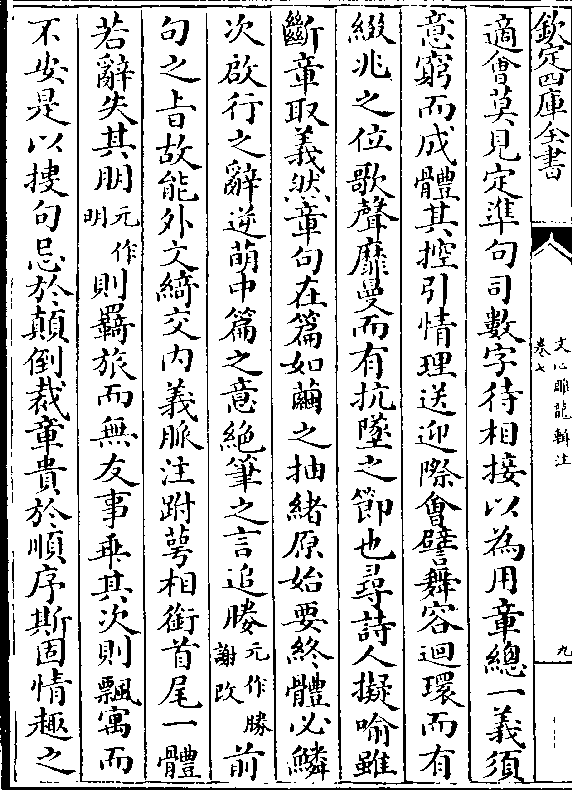 欽定四庫全書
文心雕龍輯注
卷七
九
適㑹莫見定準句司數字待相接以為用章總一義須
意窮而成體其控引情理送迎際㑹譬舞容迴環而有
綴兆之位歌聲靡曼而有抗墜之節也尋詩人擬喻雖
斷章取義然章句在篇如繭之抽緒原始要終體必鱗
次啟行之辭逆萌中篇之意絶筆之言追媵元作勝謝改前
句之㫖故能外文綺交内義脈注跗萼相銜首尾一體
若辭失其朋元作明則羇旅而無友事乖其次則飄寓而
不安是以搜句忌於顛倒裁章貴於順序斯固情趣之